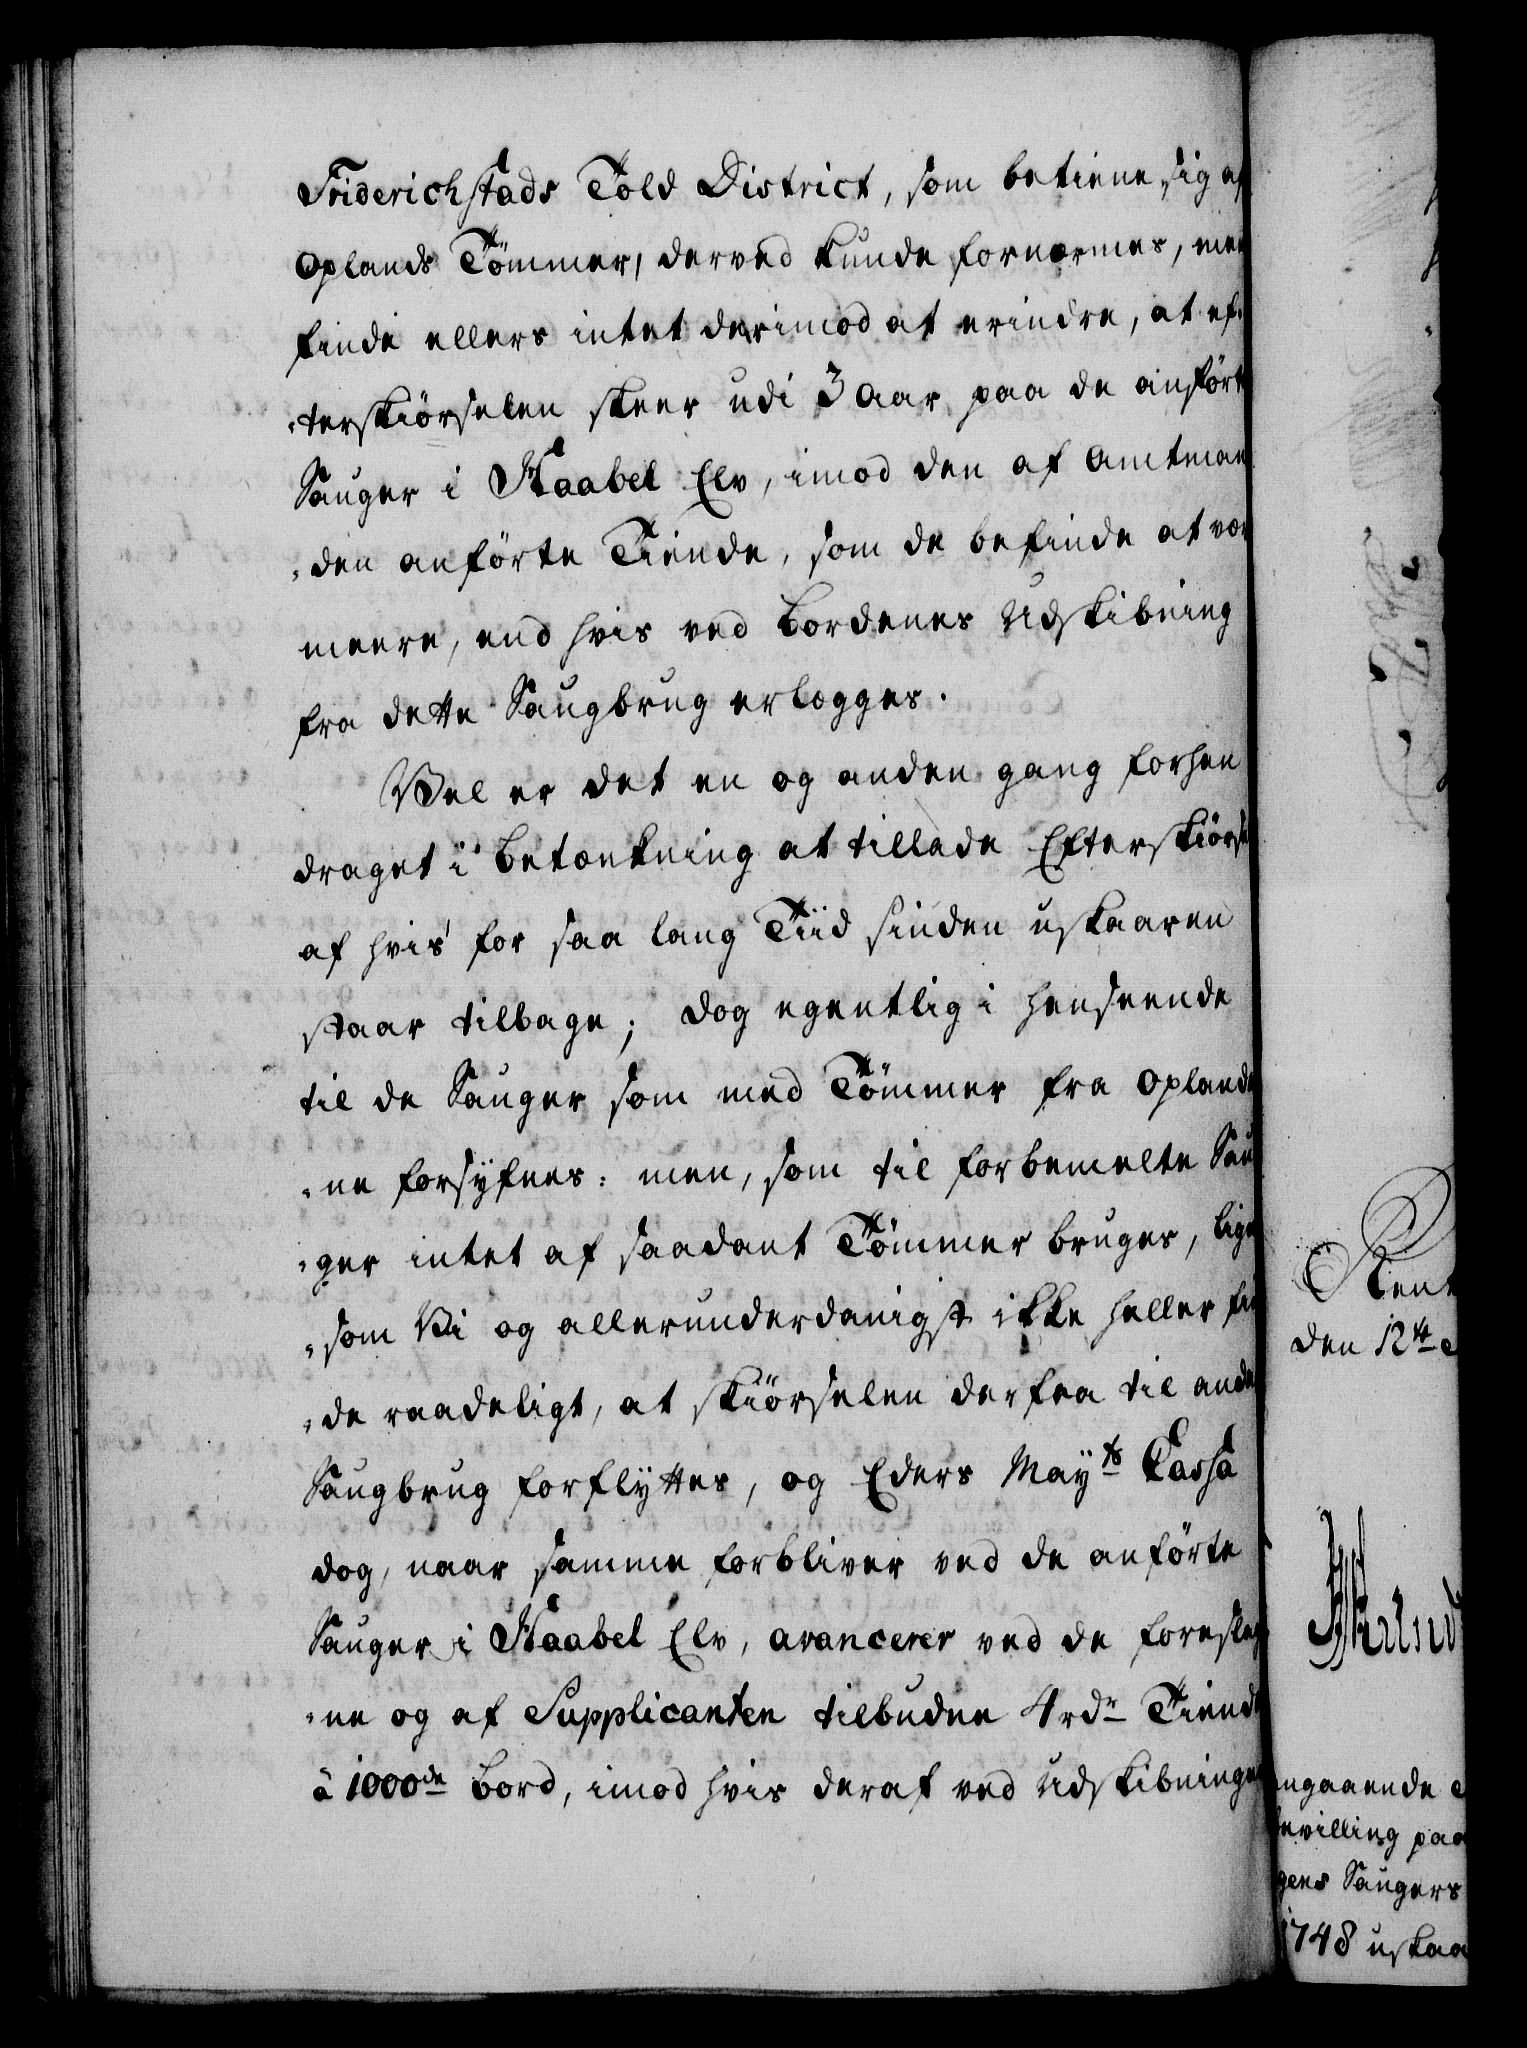 Friderichstads Told District, som betiene sig af
Oplands Tömmer, derved kunde fornærmes, men
finde ellers intet derimod at erindre, at ef-
terskiörselen skeer udi 3 Aar paa de anförte
Sauger i Staabel Elv, imod den af Amtman-
den anförte Tiende, som de befinde at være
meere, end hvis ved Bordenes Udskibning
fra dette Saugbrug erlægges.
Vel er det en og anden gang forhen
draget i betænkning at tillade Efterskiörsel
af hvis for saa lang Tiid siden uskaaren
staar tilbage; dog egentlig i henseende
til de Sauger som med Tömmer fra Oplande-
ne forsyfnes: men, som til forbemelte Sau-
ger intet af saadant Tömmer bruges, lige-
som Vi og allerunderdanigst ikke heller fin-
de raadeligt, at skiörselen derfra til andre
Saugbrug forflyttes, og Eders Mayts Cassa
dog, naar samme forbliver ved de anförte
Sauger i Staabel Elv, avancerer ved de foreslag-
ne og af Supplicanten tilbudne 4 rdr Tiende
à 1000de Bord, imod hvis deraf ved Udskibningen
Rent
den 12te
ngaaende
bevilling paa
gens Saugers
1748 uskaa